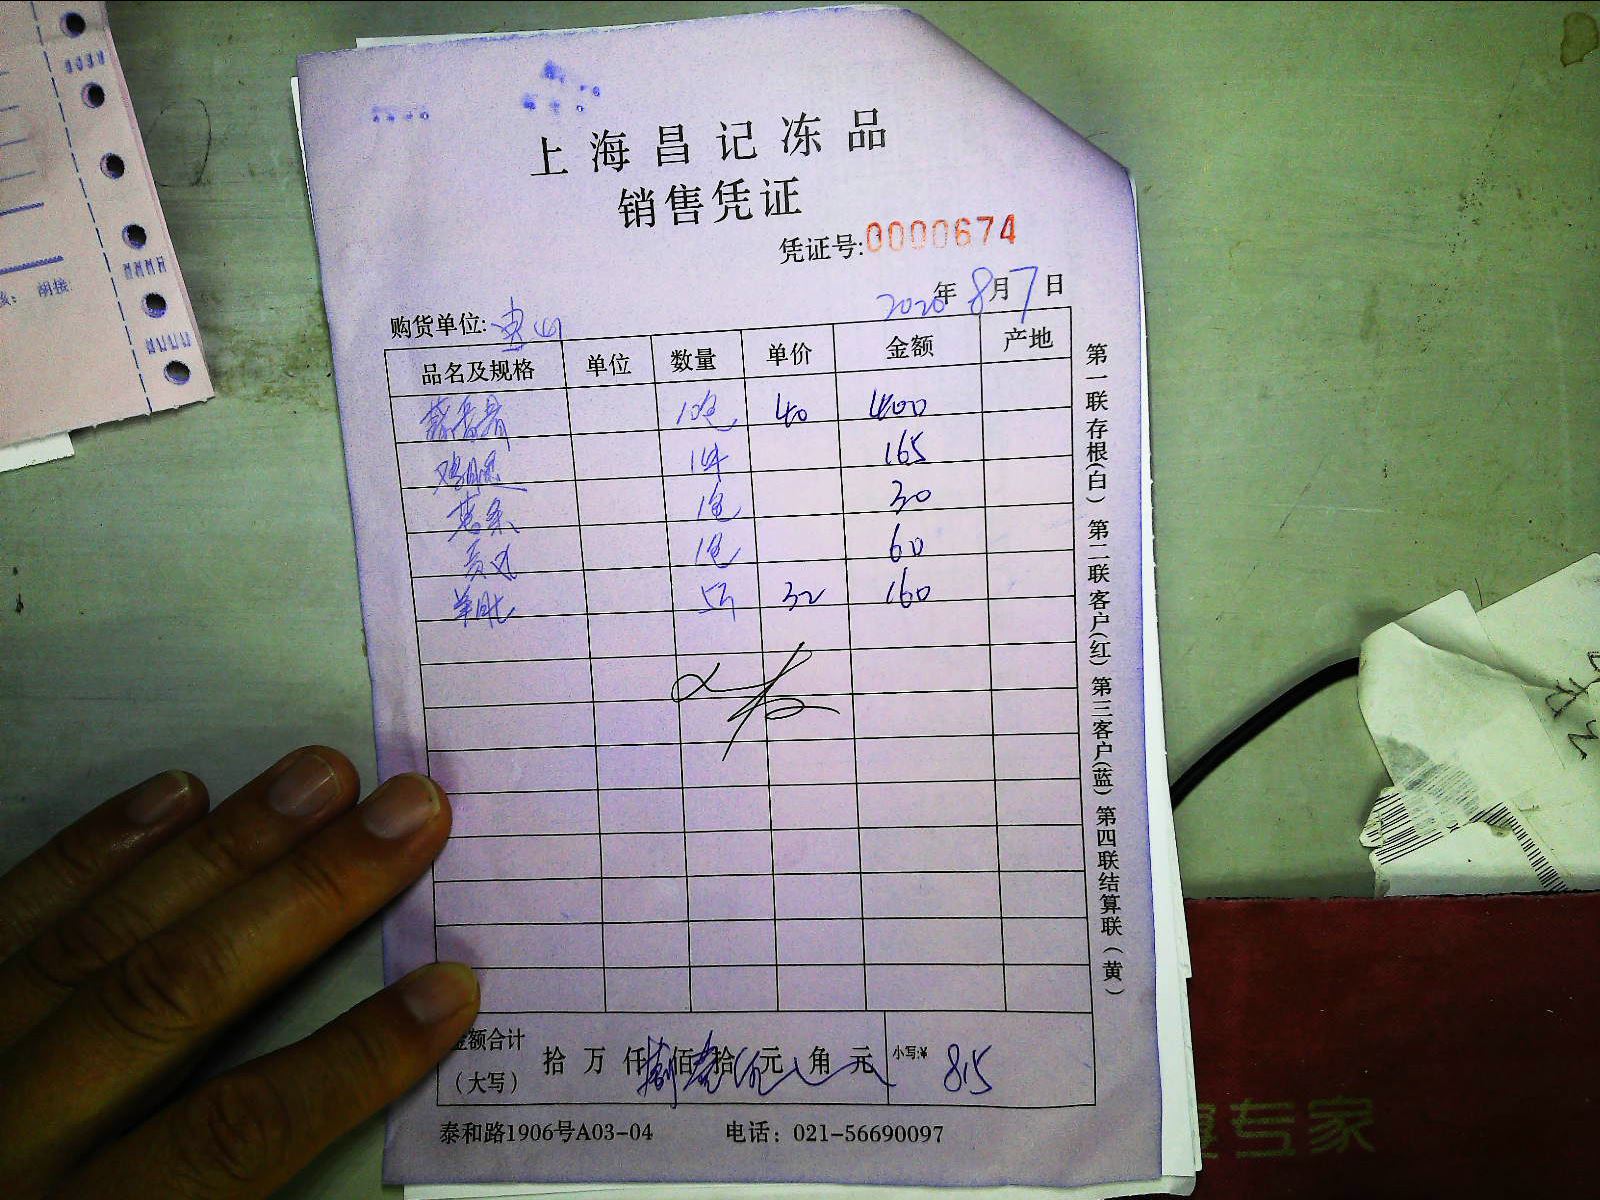 上海昌记冻品
销售凭证
凭证号:0000674
2020年8月7日
购货单位:
品名及规格 单位 数量 单价 金额 产地
10包 40 400
鸡腿 1件 165
薯条 1包 30
贡丸 1包 60
羊肚 5斤 32 160
金额合计(大写) 拾万仟捌佰壹拾伍元角元 小写:¥ 815
泰和路1906号A03-04 电话：021-56690097
第一联存根(白) 第二联客户(红) 第三客户(蓝) 第四联结算联(黄)
专家